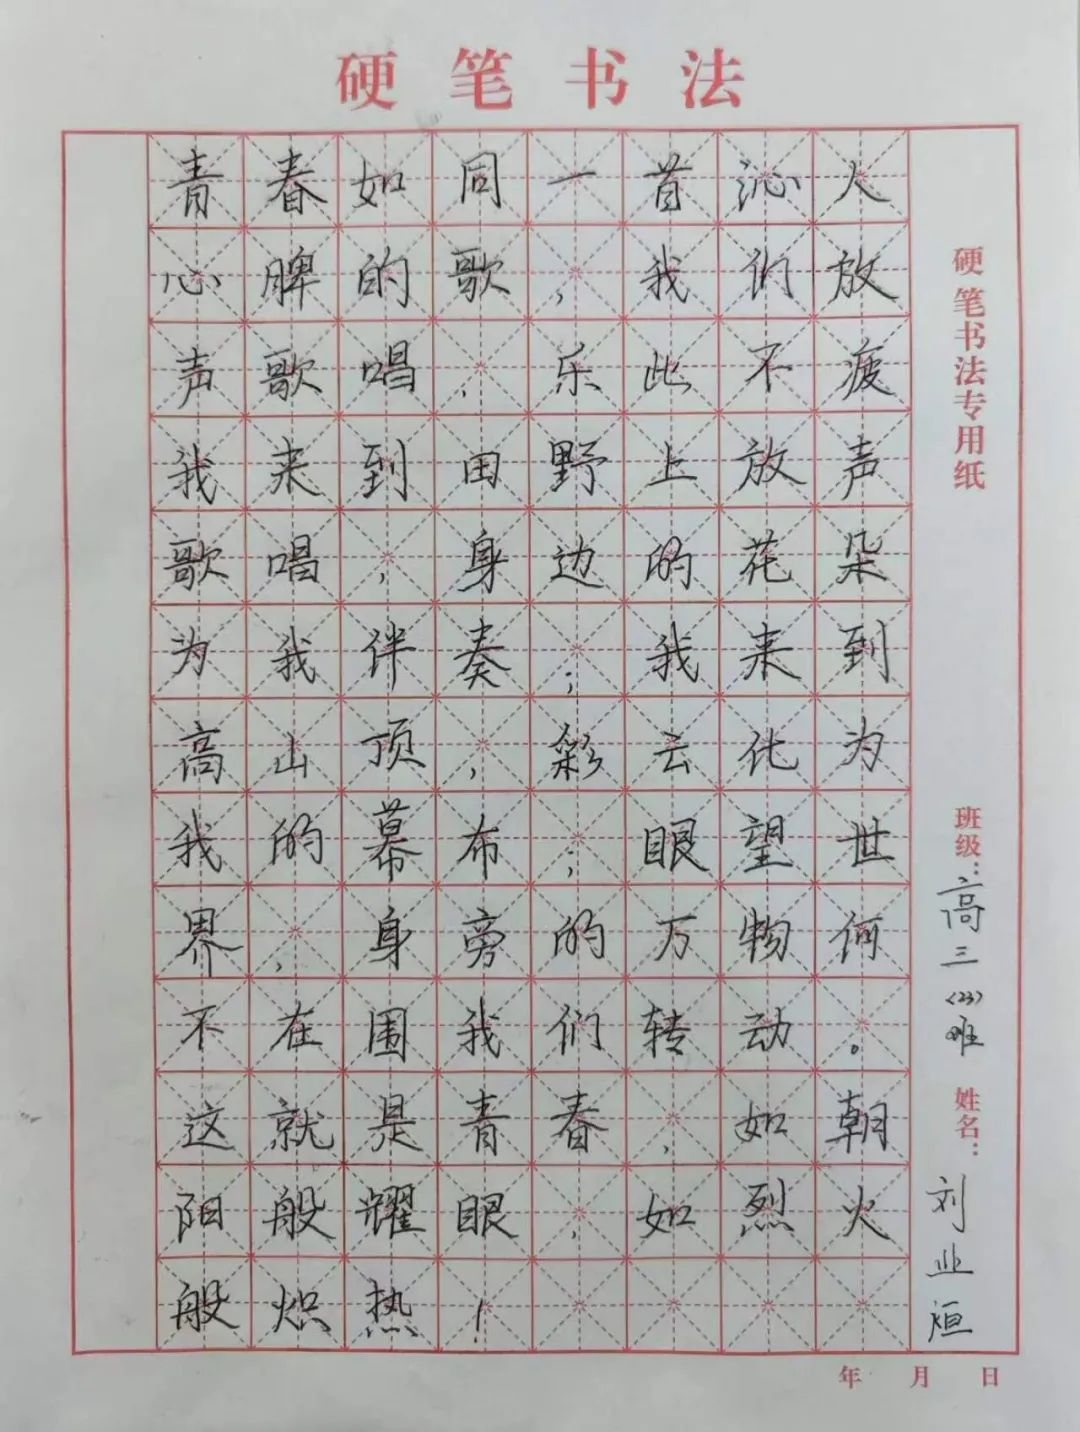 硬笔书法
青春如同一首沁人
心脾的歌，我们放
声歌唱，乐此不疲
我来到田野上放声
歌唱，身边的花朵
为我伴奏；我来到
高山顶，彩云化为
我的幕布；眼望世
界，身旁的万物何
不在围我们转动。
这就是青春，如朝
阳般耀眼，如烈火
般炽热！
硬笔书法专用纸
班级：高三（23）班
姓名：刘业烜
年 月 日